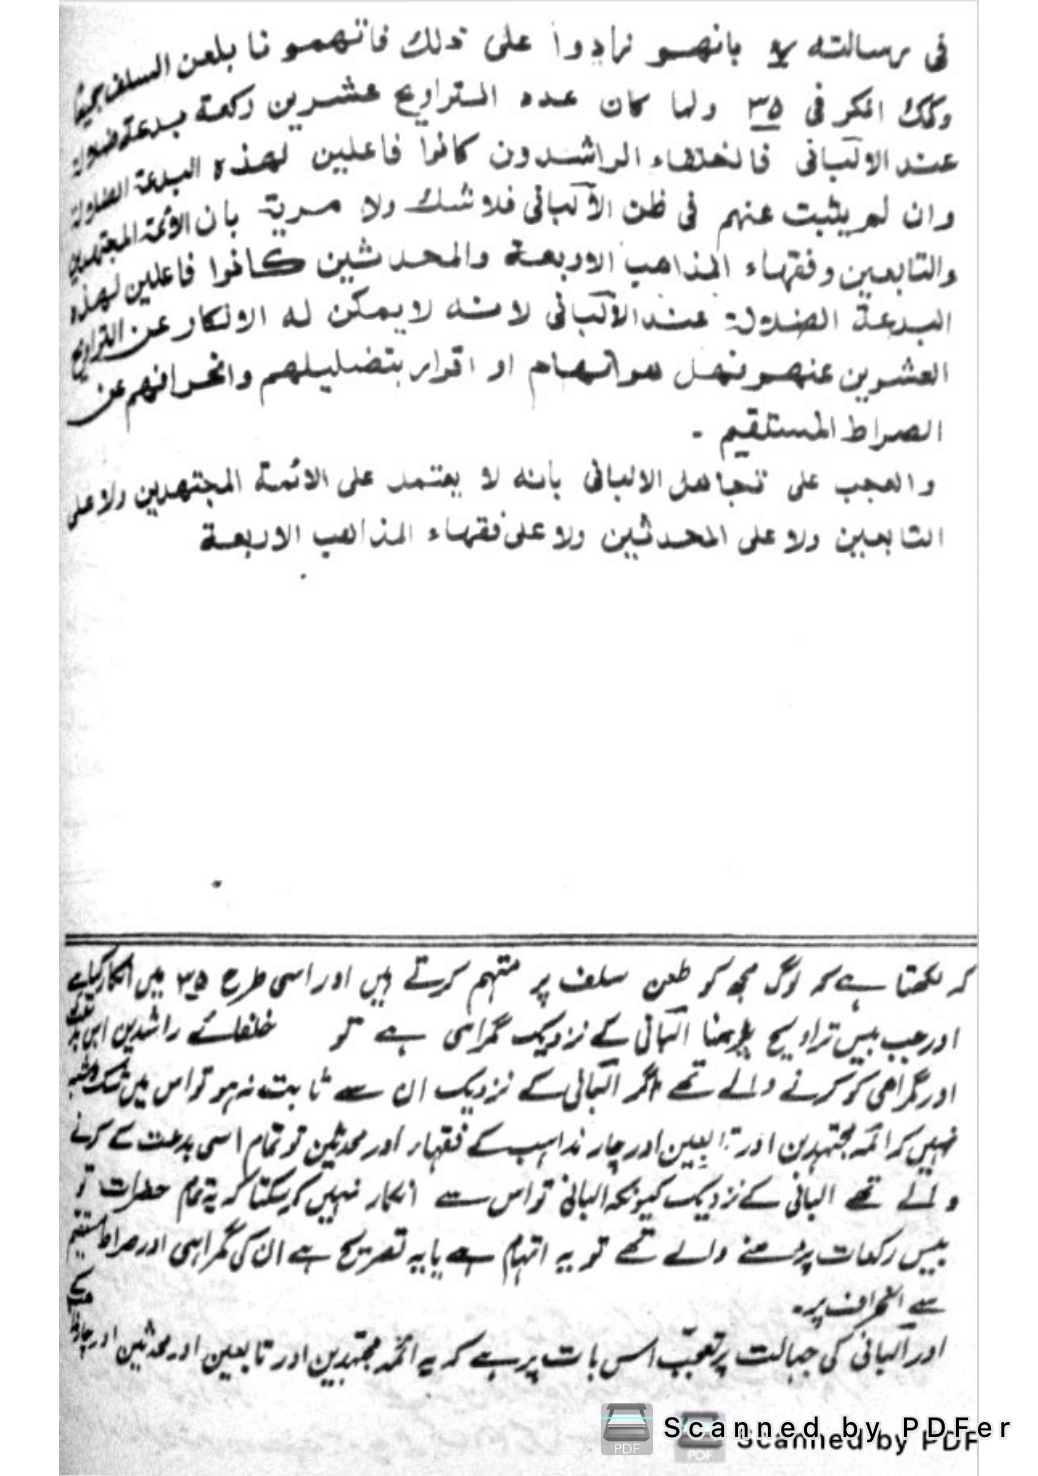 فی رسالته ٧ بانهم زادوا علی ذلك فاتهمونا بلعن السلف
وكذلك المكر فی ٣٥ ولما كان عدد التراويح عشرين ركعة بدعة ضلالة
عند الالبانی فالخلفاء الراشدون كانوا فاعلين لهذه البدعة الضلالة
وان لم يثبت عنهم فی ظن الألبانی فلا شك ولا مرية بان الأئمة المجتهدين
والتابعين وفقهاء المذاهب الاربعة والمحدثين كانوا فاعلين لهذه
البدعة الضلالة عند الألبانی لانه لا يمكن له الانكار عن التراويح
العشرين عنهم فهل هو اتهام او اقرار بتضليلهم وانحرافهم عن
الصراط المستقيم -
والعجب علی تجاهل الالبانی بانه لا يعتمد علی الائمة المجتهدين ولا علی
التابعين ولا علی المحدثين ولا علی فقهاء المذاهب الاربعة
کہ لکھتا ہے کہ لوگ مجھ کو طعن سلف پر متہم کرتے ہیں اور اسی طرح ٣٥ میں انکار کیا ہے
اور جب بیس تراویح پڑھنا البانی کے نزدیک گمراہی ہے تو خلفائے راشدین اس
اور گمراہی کو کرنے والے تھے اگر البانی کے نزدیک ان سے ثابت نہ ہو تو اس میں شک وشبہ
نہیں کہ ائمہ مجتہدین اور تابعین اور چار مذاہب کے فقہاء اور محدثین تو تمام اسی بدعت کے کرنے
والے تھے البانی کے نزدیک کیونکہ البانی تو اس سے انکار نہیں کر سکتا کہ یہ تمام حضرات تو
بیس رکعات پڑھنے والے تھے تو یہ اتہام ہے یا یہ تصریح ہے ان کی گمراہی اور صراط مستقیم
سے انحراف پر-
اور البانی کی جہالت پر تعجب اس بات پر ہے کہ یہ ائمہ مجتہدین اور تابعین اور محدثین اور چار
Scanned by PDFer
Scanned by PDF